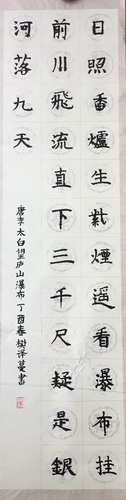 日照香爐生紫煙遥看瀑布挂
前川飛流直下三千尺疑是銀
河落九天
唐李太白望庐山瀑布 丁酉春 樹洋 書